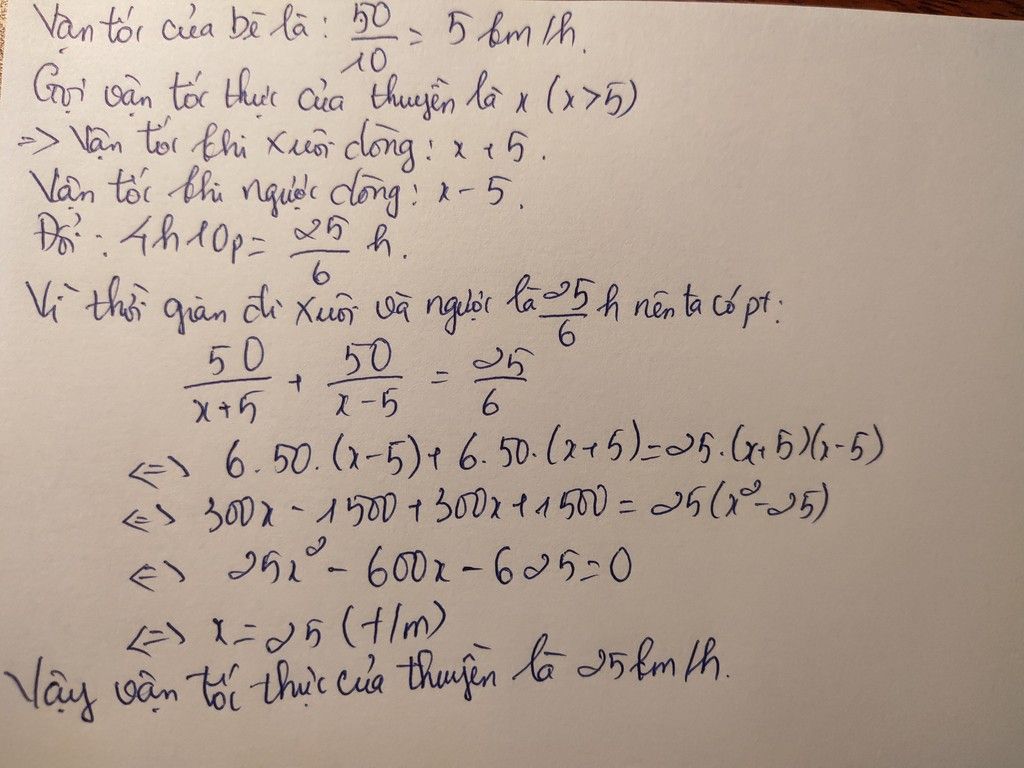 Vận tốc của bè là: 50/10 = 5 km/h.
Gọi vận tốc thực của thuyền là x (x>5)
=> Vận tốc khi xuôi dòng: x + 5.
Vận tốc khi ngược dòng: x - 5.
Đổi: 4h10p = 25/6 h.
Vì thời gian đi xuôi và ngược là 25/6 h nên ta có pt:
50/(x+5) + 50/(x-5) = 25/6
<=> 6.50.(x-5)+ 6.50.(x+5)=25.(x+5)(x-5)
<=> 300x - 1500 + 300x + 1500 = 25(x²-25)
<=> 25x² - 600x - 625 = 0
<=> x = 25 (t/m)
Vậy vận tốc thực của thuyền là 25km/h.